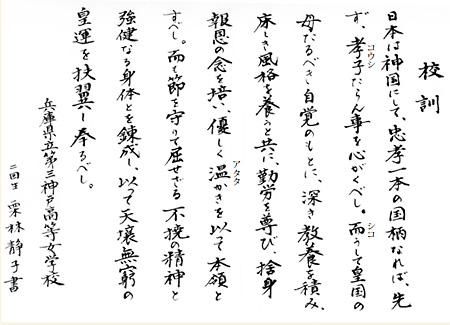 校訓
日本は神国にして、忠孝一本の国柄なれば、先
ず、孝子たらん事を心がくべし。而うして皇国の
母たるべき自覚のもとに、深き教養を積み、
床しき風格を養うと共に、勤労を尊び、捨身
報恩の念を培い、優しく温かきを以って本領と
すべし。而も節を守りて屈せざる不撓の精神と
強健なる身体とを錬成し、以って天壌無窮の
皇運を扶翼し奉るべし。
兵庫県立第三神戸高等女学校
二回生 栗林静子書
コウシ
シコ
アタタ